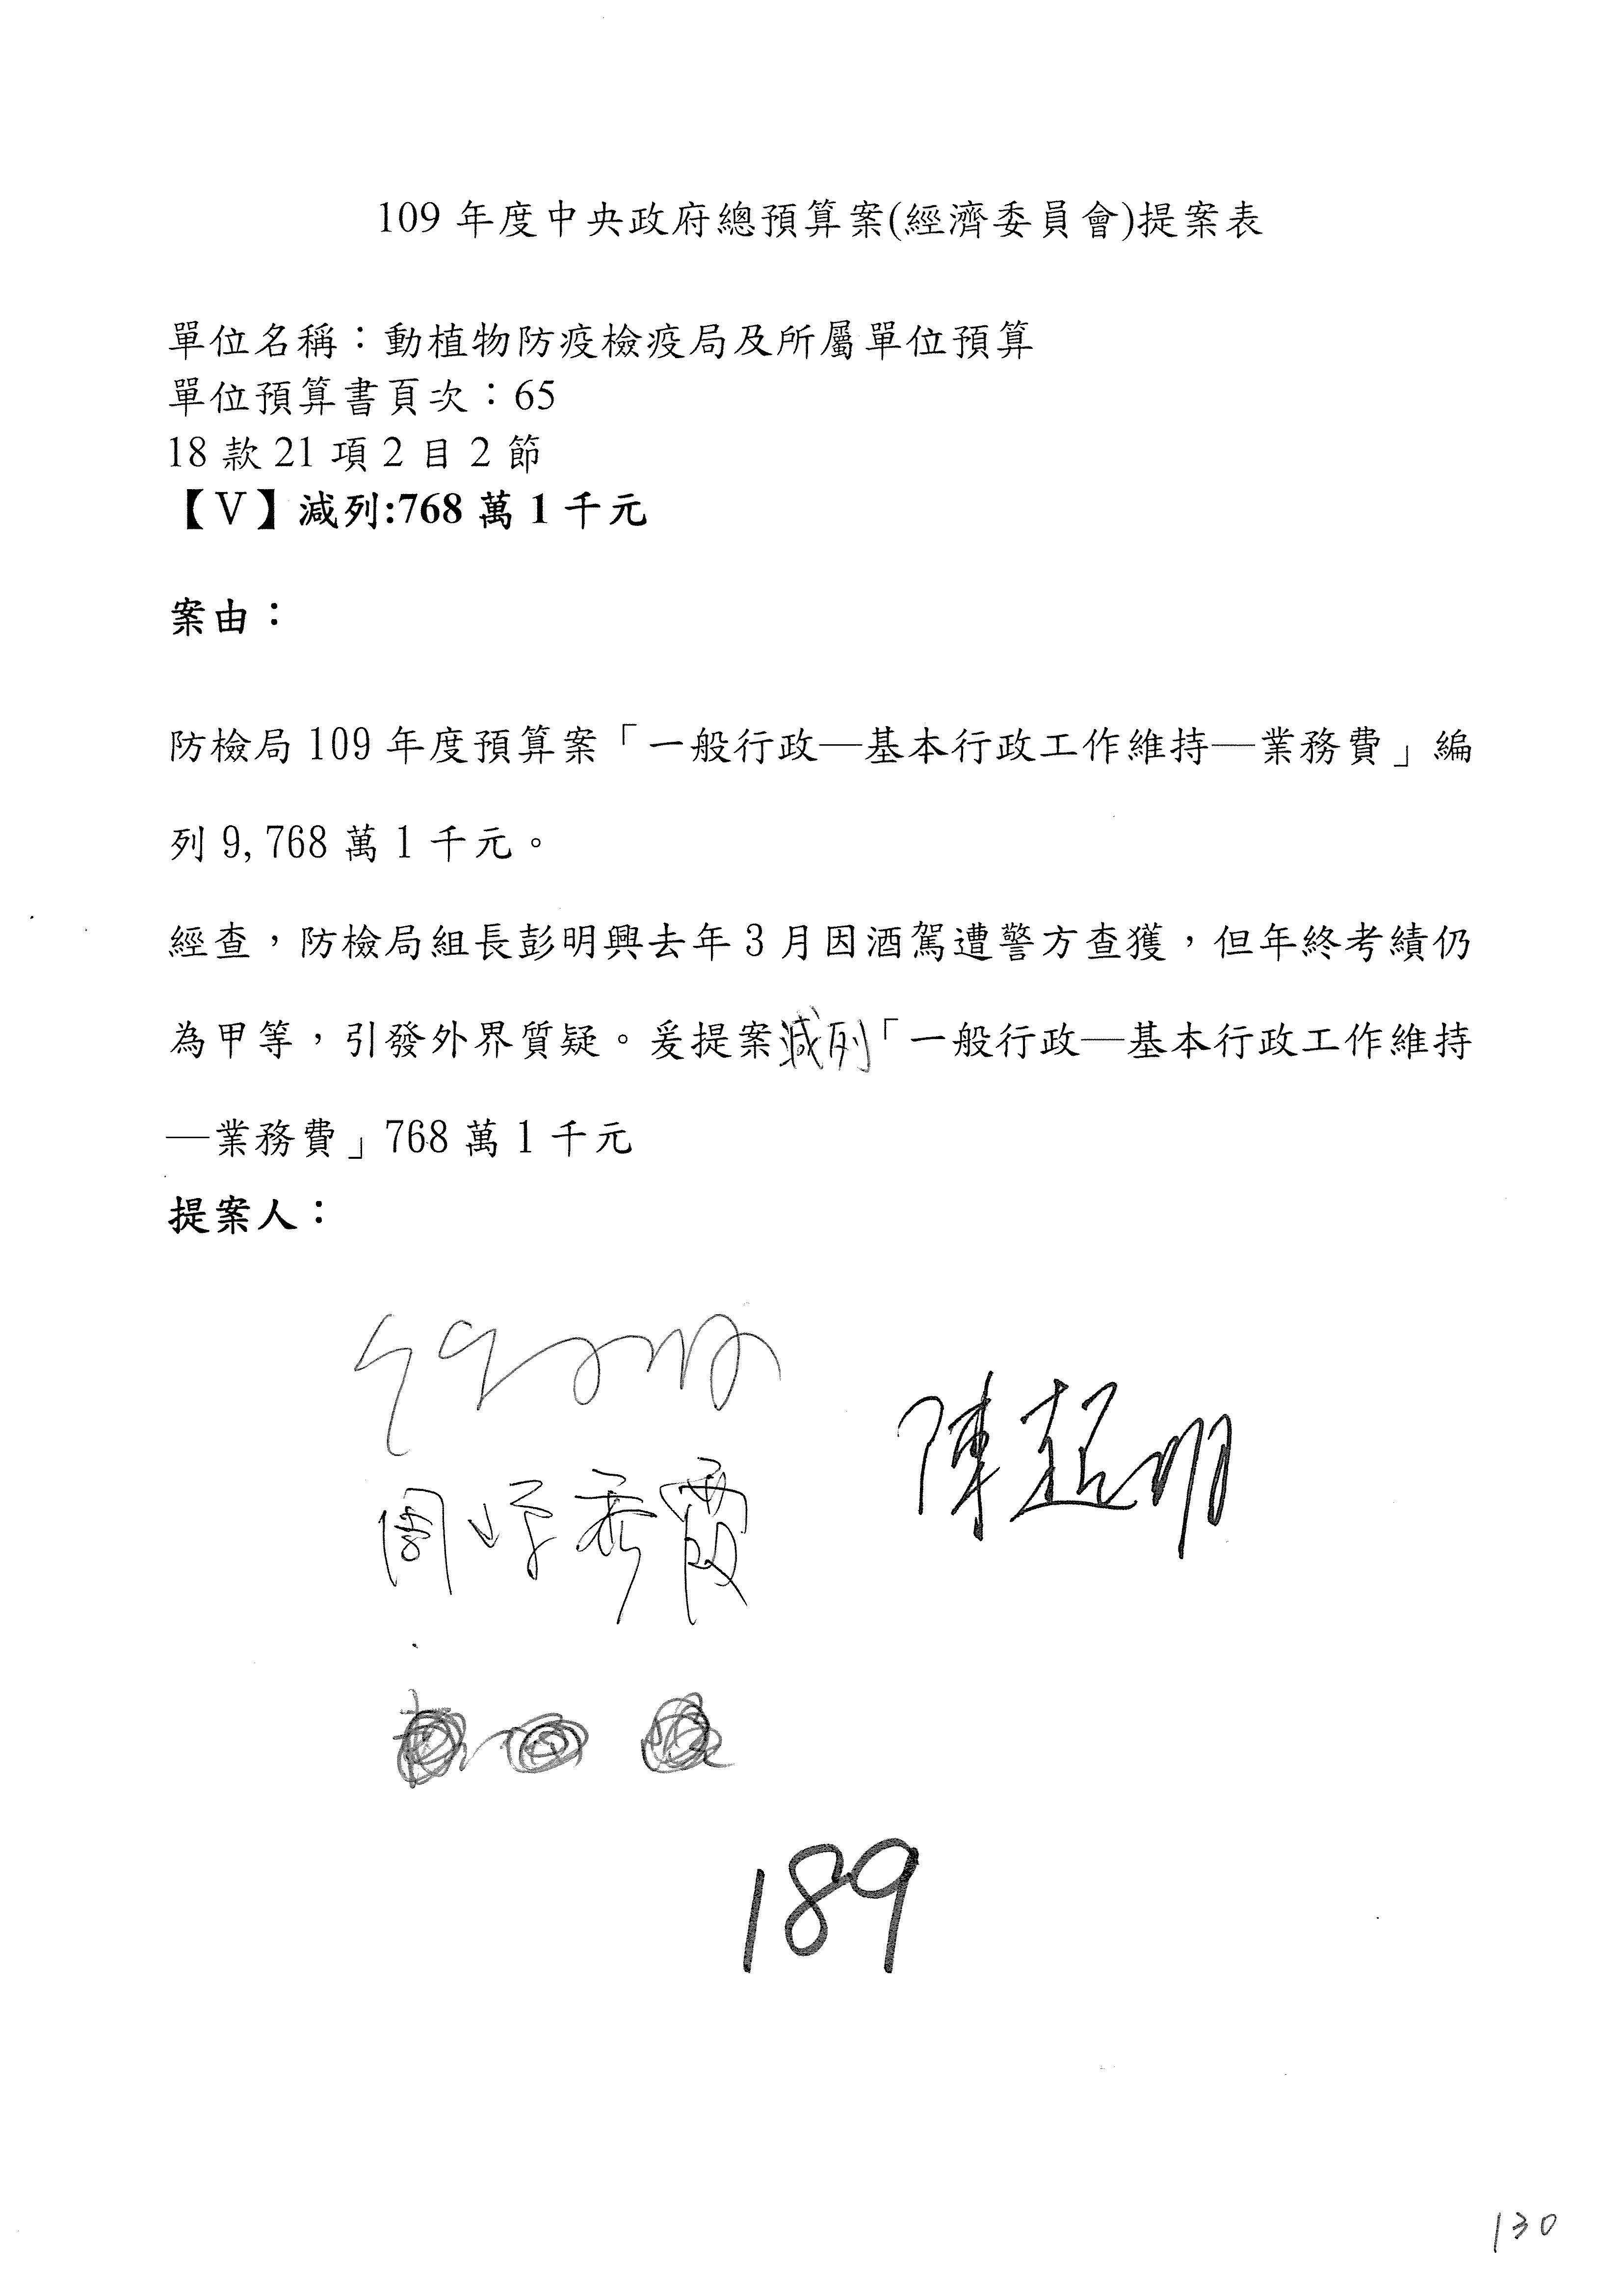 109 年度中央政府總預算案(經濟委員會)提案表
單位名稱：動植物防疫檢疫局及所屬單位預算
單位預算書頁次：65
18 款 21 項 2 目 2 節
【V】減列:768 萬 1 千元
案由：
防檢局 109 年度預算案「一般行政—基本行政工作維持—業務費」編
列 9,768 萬 1 千元。
經查，防檢局組長彭明興去年 3 月因酒駕遭警方查獲，但年終考績仍
為甲等，引發外界質疑。爰提案減列「一般行政—基本行政工作維持
—業務費」768 萬 1 千元
提案人：
陳超明
周陳秀霞
189
130